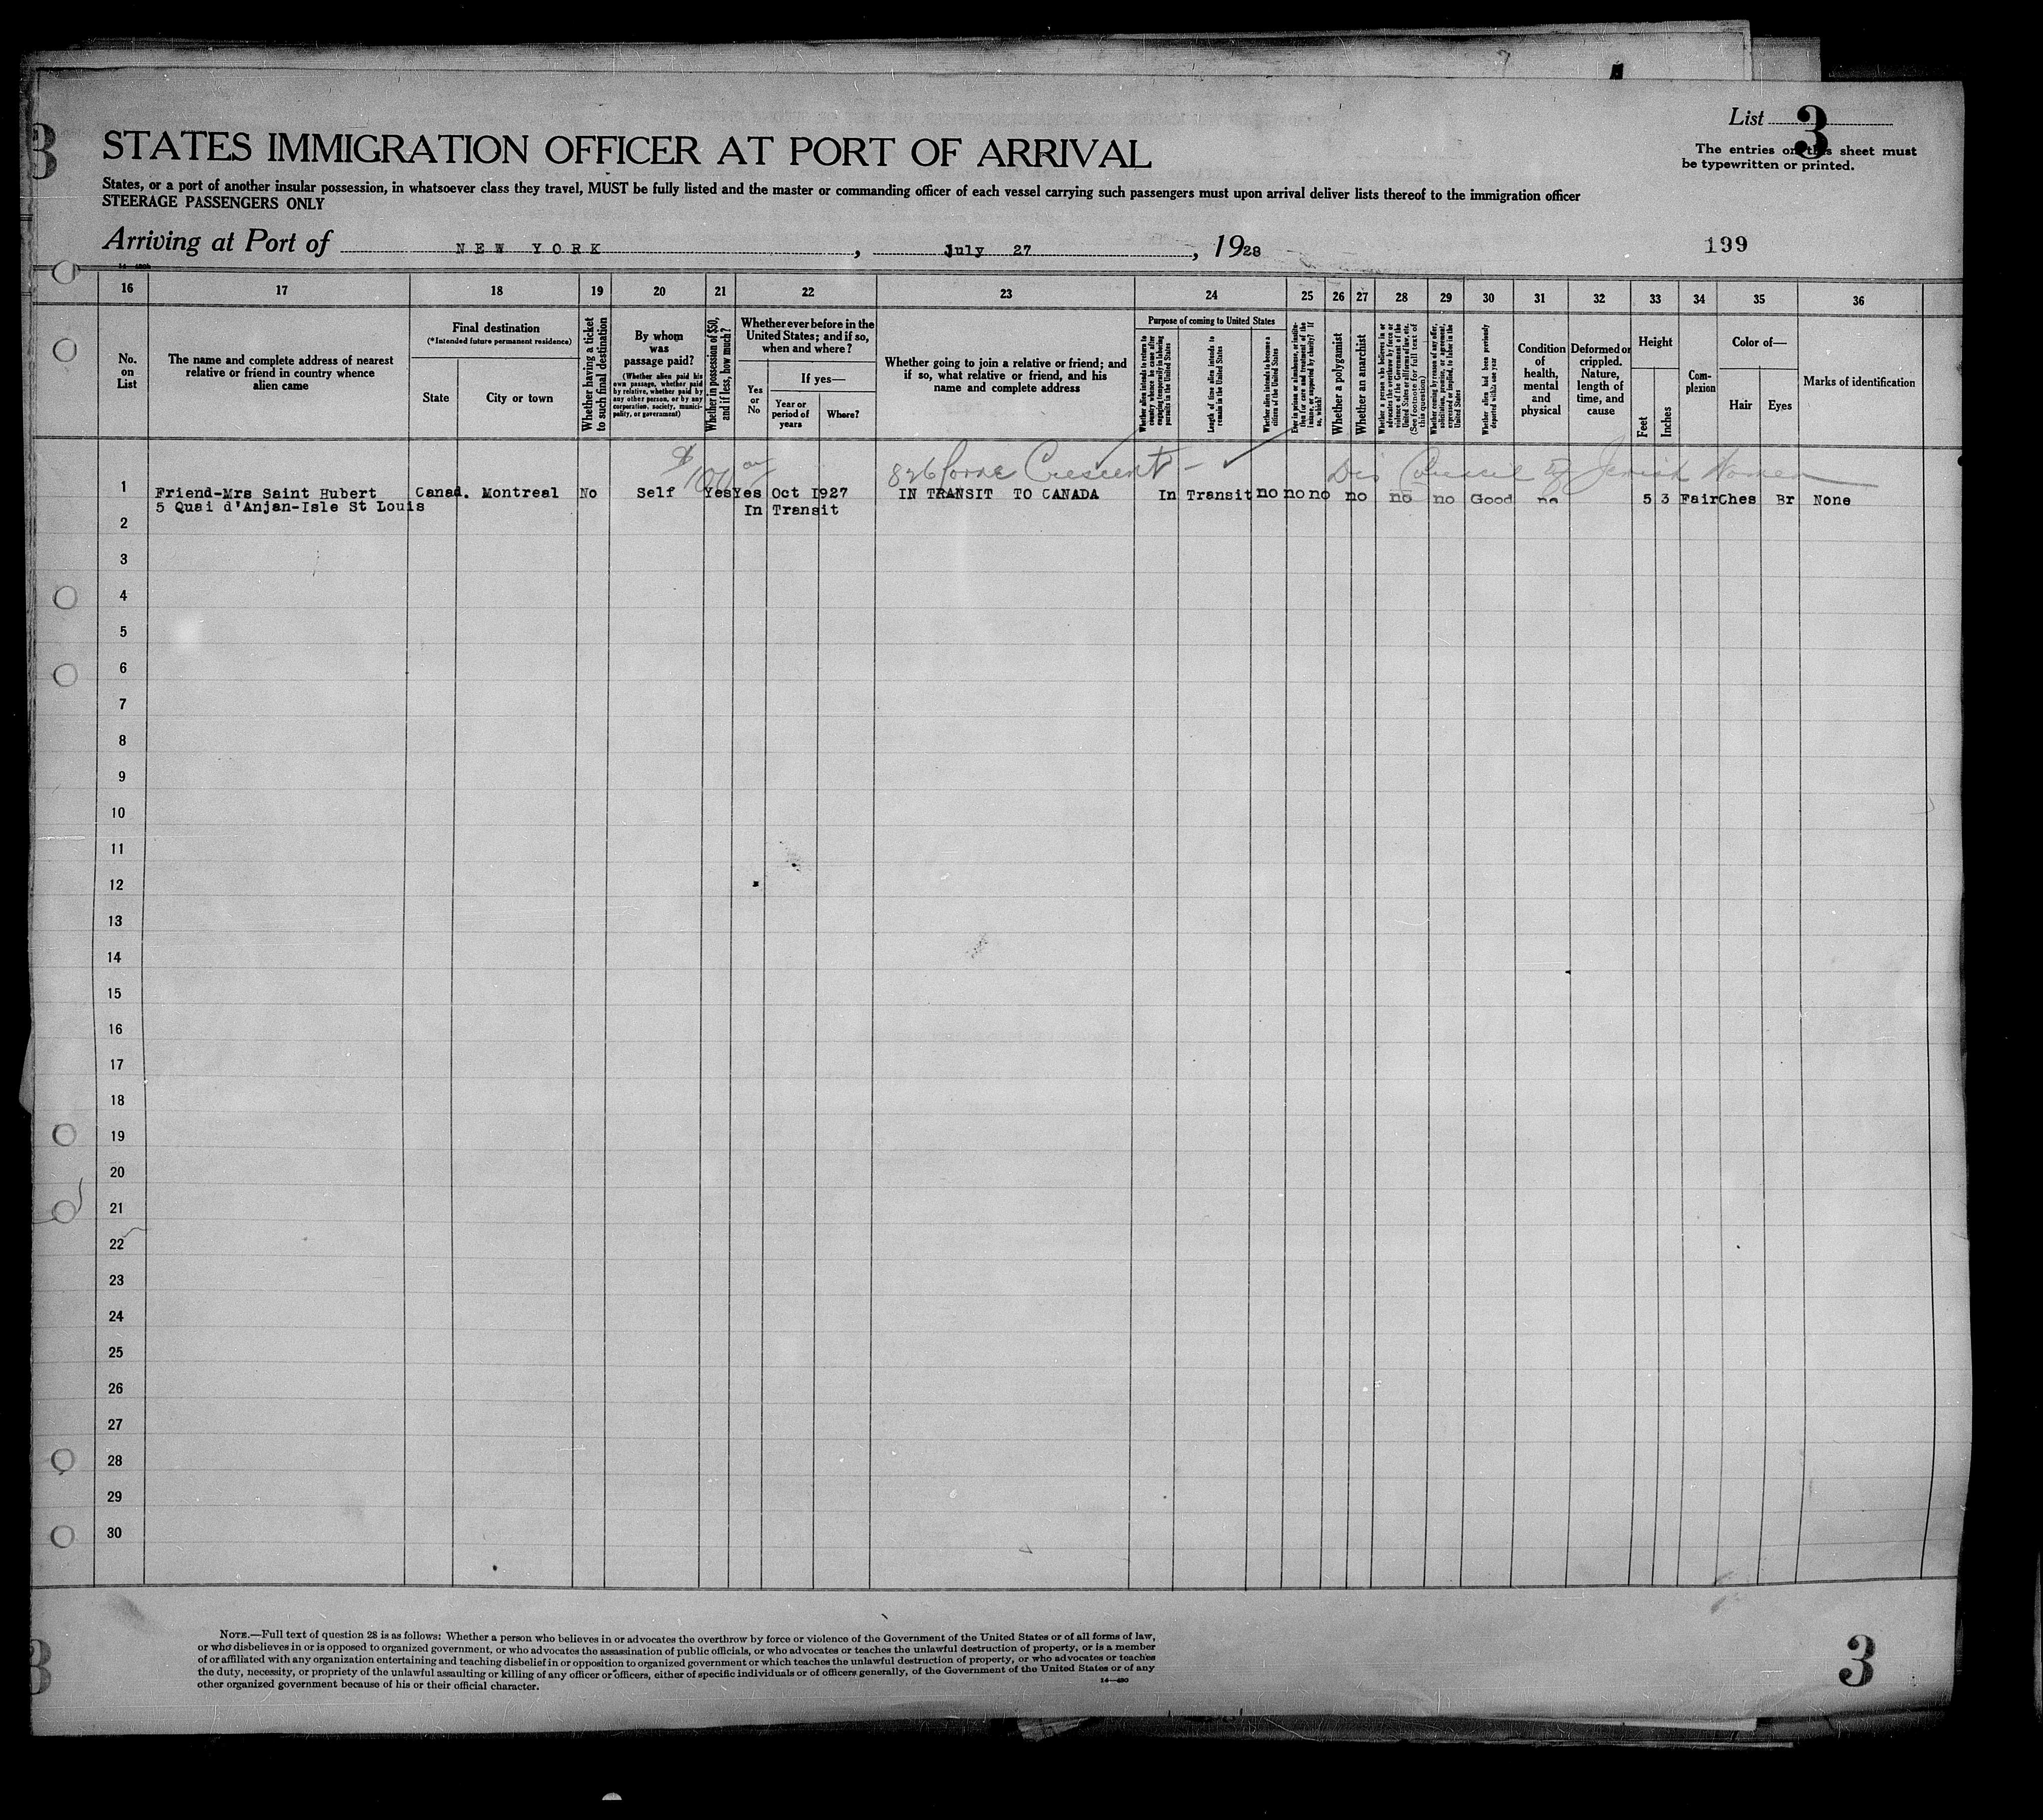 3
List 3
STATES IMMIGRATION OFFICER AT PORT OF ARRIVAL
The entries on this sheet must
be typewritten or printed.
States, or a port of another insular possession, in whatsoever class they travel, MUST be fully listed and the master or commanding officer of each vessel carrying such passengers must upon arrival deliver lists thereof to the immigration officer
STEERAGE PASSENGERS ONLY
Arriving at Port of NEW YORK, July 27, 1928
199
16 17 18 19 20 21 22 23 24 25 26 27 28 29 30 31 32 33 34 35 36
No. on List
The name and complete address of nearest relative or friend in country whence alien came
Final destination
(*Intended future permanent residence)
State
City or town
Whether having a ticket to such final destination
By whom was passage paid?
(Whether alien paid his own passage, whether paid by relative, whether paid by any other person, or by any corporation, society, municipality, or government)
Whether in possession of $50, and if less, how much?
Whether ever before in the United States; and if so, when and where?
Yes or No
If yes—
Year or period of years
Where?
Whether going to join a relative or friend; and if so, what relative or friend, and his name and complete address
Purpose of coming to United States
Whether alien intends to return to country whence he came after engaging temporarily in laboring pursuits in the United States
Length of time alien intends to remain in the United States
Whether alien intends to become a citizen of the United States
Ever in prison or almshouse, or institution for care and treatment of the insane, or supported by charity? If so, which?
Whether a polygamist
Whether an anarchist
Whether a person who believes in or advocates the overthrow by force or violence of the Government of the United States or all forms of law, etc. (See footnote for full text of this question)
Whether coming by reason of any offer, solicitation, promise, or agreement, expressed or implied, to labor in the United States
Whether alien had been previously deported within one year
Condition of health, mental and physical
Deformed or crippled. Nature, length of time, and cause
Height
Feet
Inches
Complexion
Color of—
Hair
Eyes
Marks of identification
$100 826 Crescent - Council of Jewish Women
1 Friend-Mrs Saint Hubert Canad. Montreal No Self Yes Yes Oct 1927 IN TRANSIT TO CANADA In Transit no no no no no no Good no 5 3 Fair Ches Br None
5 Quai d'Anjan-Isle St Louis In Transit
2
3
4
5
6
7
8
9
10
11
12
13
14
15
16
17
18
19
20
21
22
23
24
25
26
27
28
29
30
NOTE.—Full text of question 28 is as follows: Whether a person who believes in or advocates the overthrow by force or violence of the Government of the United States or of all forms of law,
or who disbelieves in or is opposed to organized government, or who advocates the assassination of public officials, or who advocates or teaches the unlawful destruction of property, or is a member
of or affiliated with any organization entertaining and teaching disbelief in or opposition to organized government or which teaches the unlawful destruction of property, or who advocates or teaches
the duty, necessity, or propriety of the unlawful assaulting or killing of any officer or officers, either of specific individuals or of officers generally, of the Government of the United States or of any
other organized government because of his or their official character.
14—430
3
3